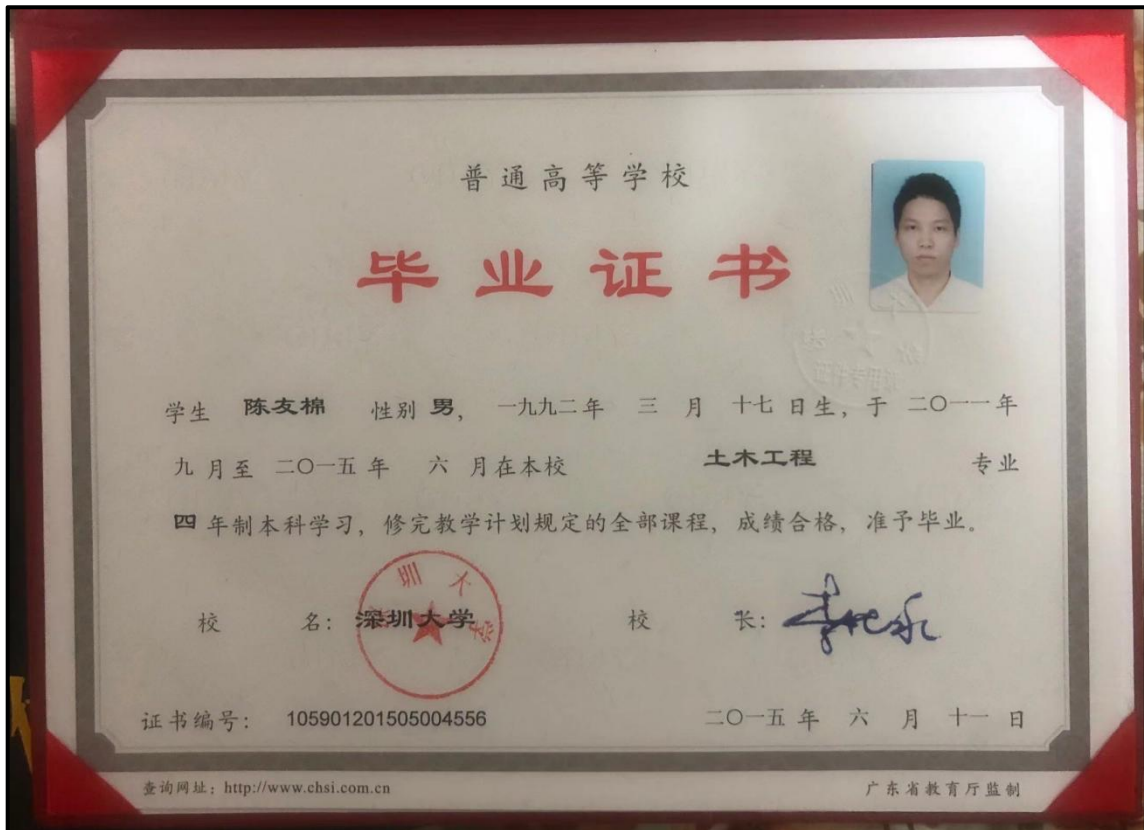 普通高等学校
毕业证书
学生 陈友棉 性别 男, 一九九二年 三 月 十七 日生, 于 二〇一一年
九 月至 二〇一五年 六 月在本校 土木工程 专业
四 年制本科学习, 修完教学计划规定的全部课程, 成绩合格, 准予毕业。
校 名: 深圳大学 校 长:
证书编号: 105901201505004556 二〇一五年 六 月 十一 日
查询网址: http://www.chsi.com.cn 广东省教育厅监制